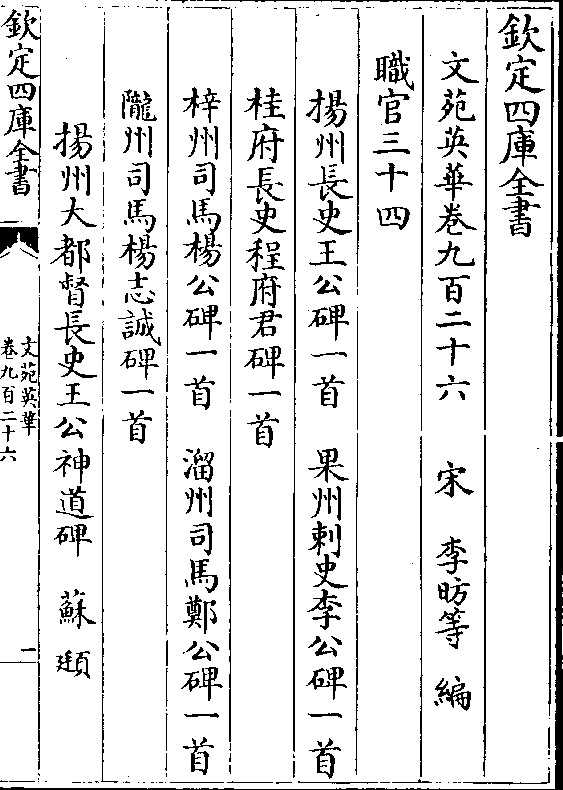 欽定四庫全書
文苑英華卷九百二十六 宋 李昉等 編
職官三十四
揚州長史王公碑一首 果州刺史李公碑一首
桂府長史程府君碑一首
梓州司馬楊公碑一首 溜州司馬鄭公碑一首
隴州司馬楊志誠碑一首
揚州大都督長史王公神道碑 蘇頲
欽定四庫全書
文苑英華
卷九百二十六
一